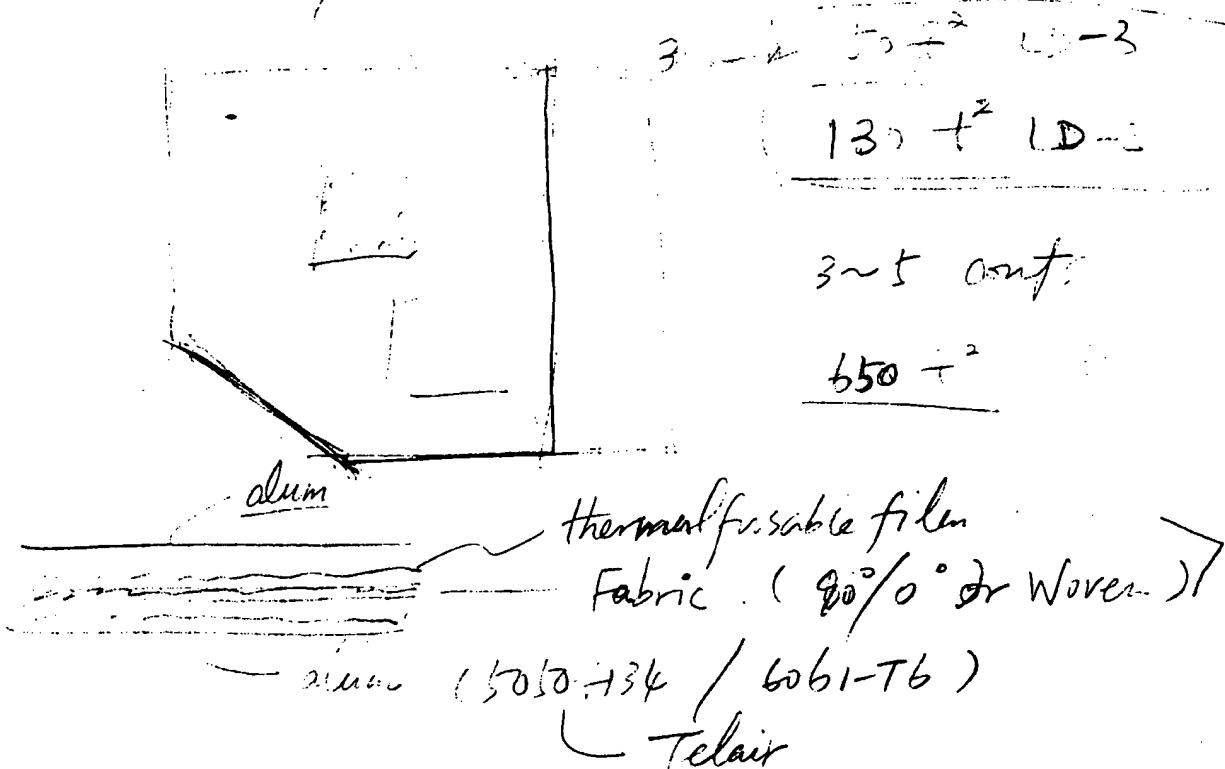 3
50 ft² LD-3
130 ft² LD-
3~5 cont.
650 ft²
alum
thermal fusable film
Fabric. (90°/0° or Woven)
alum (5050-H34 / 6061-T6)
Telair